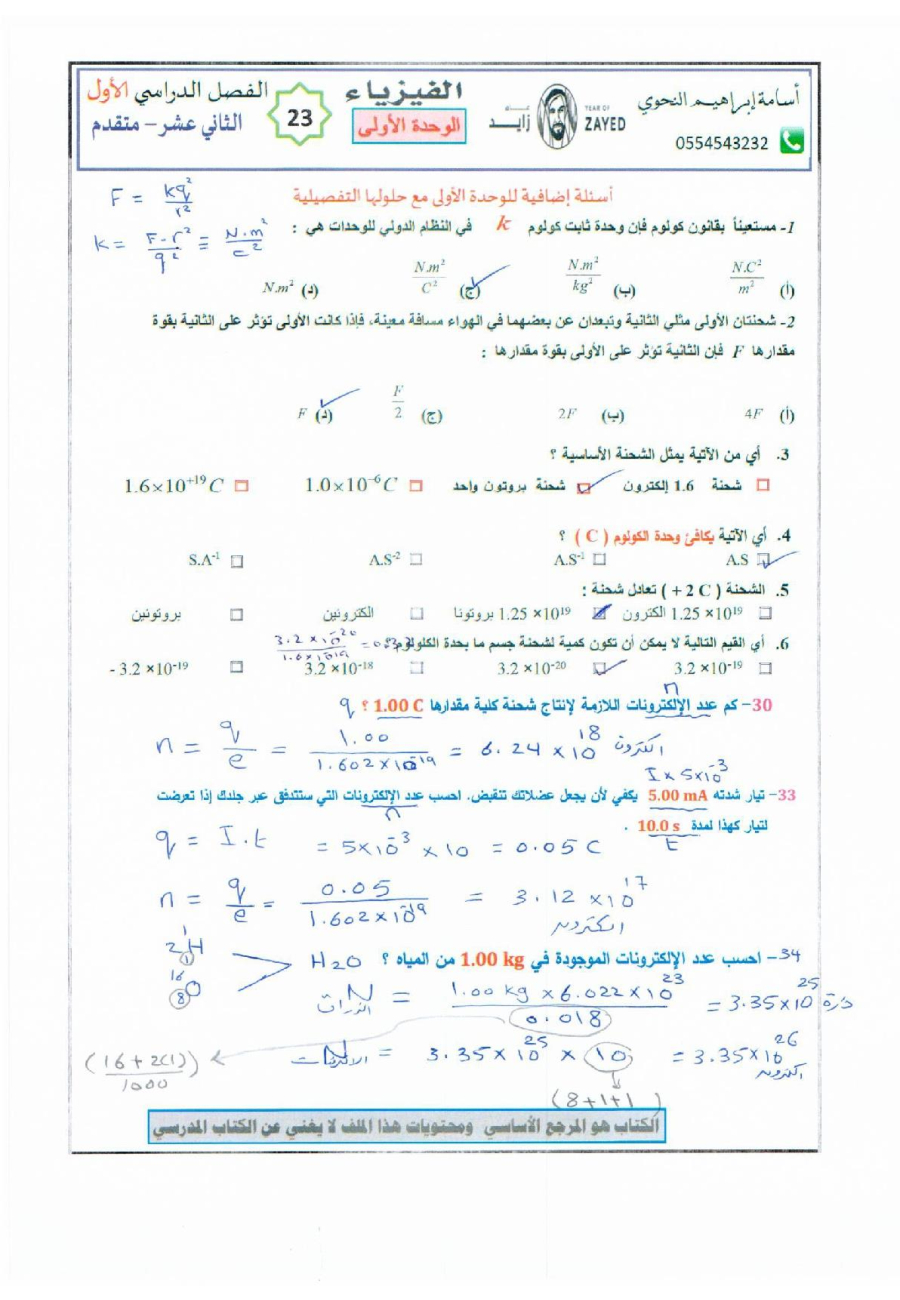 أسامة إبراهيم النحوي
0554543232
عام زايد
YEAR OF ZAYED
الفيزياء
الوحدة الأولى
23
الفصل الدراسي الأول
الثاني عشر – متقدم
أسئلة إضافية للوحدة الأولى مع حلولها التفصيلية
F = kq²/r²
k = F.r²/q² = N.m²/c²
1- مستعيناً بقانون كولوم فإن وحدة ثابت كولوم k في النظام الدولي للوحدات هي :
(أ) N.C²/m² (ب) N.m²/kg² (ج) N.m²/C² (د) N.m²
2- شحنتان الأولى مثلي الثانية وتبعدان عن بعضهما في الهواء مسافة معينة، فإذا كانت الأولى تؤثر على الثانية بقوة
مقدارها F فإن الثانية تؤثر على الأولى بقوة مقدارها :
(أ) 4F (ب) 2F (ج) F/2 (د) F
3. أي من الآتية يمثل الشحنة الأساسية ؟
☐ شحنة 1.6 إلكترون ☑ شحنة بروتون واحد ☐ 1.0×10⁻⁶ C ☐ 1.6×10⁺¹⁹ C
4. أي الآتية يكافئ وحدة الكولوم ( C ) ؟
☑ A.S ☐ A.S⁻¹ ☐ A.S⁻² ☐ S.A⁻¹
5. الشحنة ( + 2 C ) تعادل شحنة :
☐ 1.25 ×10¹⁹ الكترون ☑ 1.25 ×10¹⁹ بروتونا ☐ الكترونين ☐ بروتونين
6. أي القيم التالية لا يمكن أن تكون كمية لشحنة جسم ما بحدة الكلولوم؟
3.2 × 10⁻²⁰ / 1.6 × 10⁻¹⁹
☐ 3.2 ×10⁻¹⁹ ☑ 3.2 ×10⁻²⁰ ☐ 3.2 ×10⁻¹⁸ ☐ - 3.2 ×10⁻¹⁹
n
30– كم عدد الإلكترونات اللازمة لإنتاج شحنة كلية مقدارها 1.00 C ؟ q
n = q/e = 1.00 / 1.602×10⁻¹⁹ = 6.24 × 10¹⁸ الكترون
I × 5×10⁻³
33– تيار شدته 5.00 mA يكفي لأن يجعل عضلاتك تنقبض. احسب عدد الإلكترونات التي ستتدفق عبر جلدك إذا تعرضت
n
لتيار كهذا لمدة 10.0 s .
t
q = I.t = 5×10⁻³ × 10 = 0.05 C
n = q/e = 0.05 / 1.602×10⁻¹⁹ = 3.12 ×10¹⁷ الكترون
34– احسب عدد الإلكترونات الموجودة في 1.00 kg من المياه ؟ H₂O
1 2H 1
16 O 8
N الذرات = 1.00 kg × 6.022×10²³ / 0.018 = 3.35×10²⁵ ذرة
N الالكترونات = 3.35×10²⁵ × 10 = 3.35×10²⁶ الكترون
(16+2(1)) / 1000
(8+1+1)
الكتاب هو المرجع الأساسي ومحتويات هذا الملف لا يغني عن الكتاب المدرسي